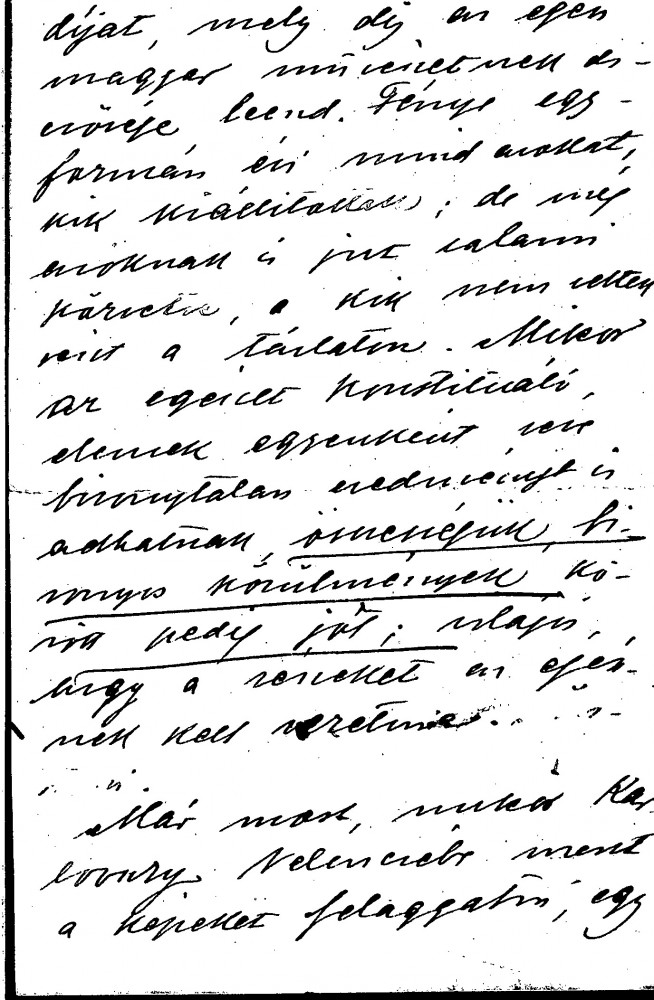 díjat, mely díj az egész
magyar művészetnek di-
csősége leend. Fénye egy-
formán éri mind azokat,
kik kiállítottak; de még
azoknak is jut valami
közvetve, a kik nem vettek
részt a tárlaton. Mikor
az egészet konstituáló,
elemek egyenként
bizonytalan eredményt is
adhatnak, összességük bi-
zonyos körülmények kö-
zött pedig jót; világos,
hogy a részeket az egész-
nek kell vezetnie.
Már most, mikor Kar-
lovszky Velenczébe ment
a képeket felaggatni, egy